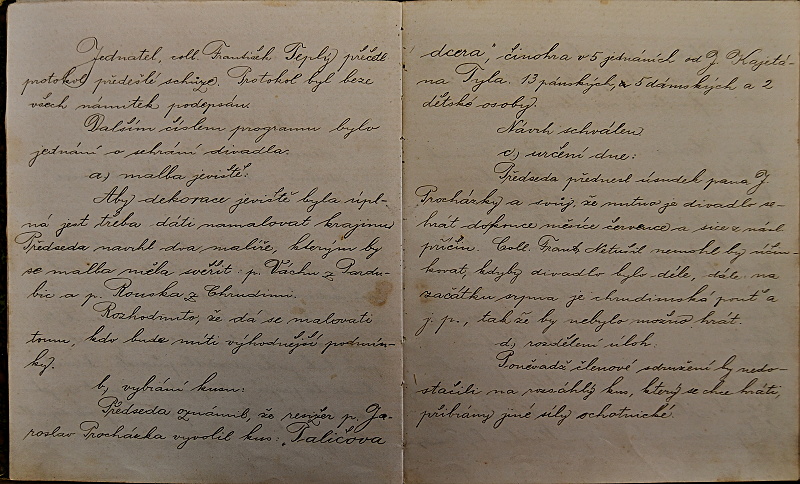 Jednatel, coll. František Teplý přečetl
protokol předešlé schůze. Protokol byl beze
všech námitek podepsán.
Dalším číslem programu bylo
jednání o sehrání divadla.
a) malba jeviště:
Aby dekorace jeviště byla úpl-
ná jest třeba dáti namalovat krajinu
Předseda navrhl dva malíře, kterým by
se malba měla svěřit: p. Váchu z Pardu-
bic a p. Rouska z Chrudimi.
Rozhodnuto, že dá se malovati
tomu, kdo bude míti výhodnější podmín-
ky.
b) vybrání kusu:
Předseda oznámil, že režiser p. Ja-
roslav Procházka vyvolil kus: „Paličova
dcera", činohra v 5 jednáních od J. Kajetá-
na Tyla. 13 pánských, 5 dámských a 2
dětské osoby.
Návrh schválen
c) určení dne:
Předseda přednesl úsudek pana J.
Procházky a svůj, že nutno je divadlo se-
hrát dokonce měsíce července a sice z násl.
příčin. Coll. Frant. Netušil nemohl by účin-
kovat, kdyby divadlo bylo déle, dále na
začátku srpna je chrudimská pouť a
j. p., tak že by nebylo možno hrát.
d) rozdělení úloh.
Poněvadž členové sdružení by nedo-
stačili na rozsáhlý kus, který se chce hráti,
přibrány jiné síly ochotnické.